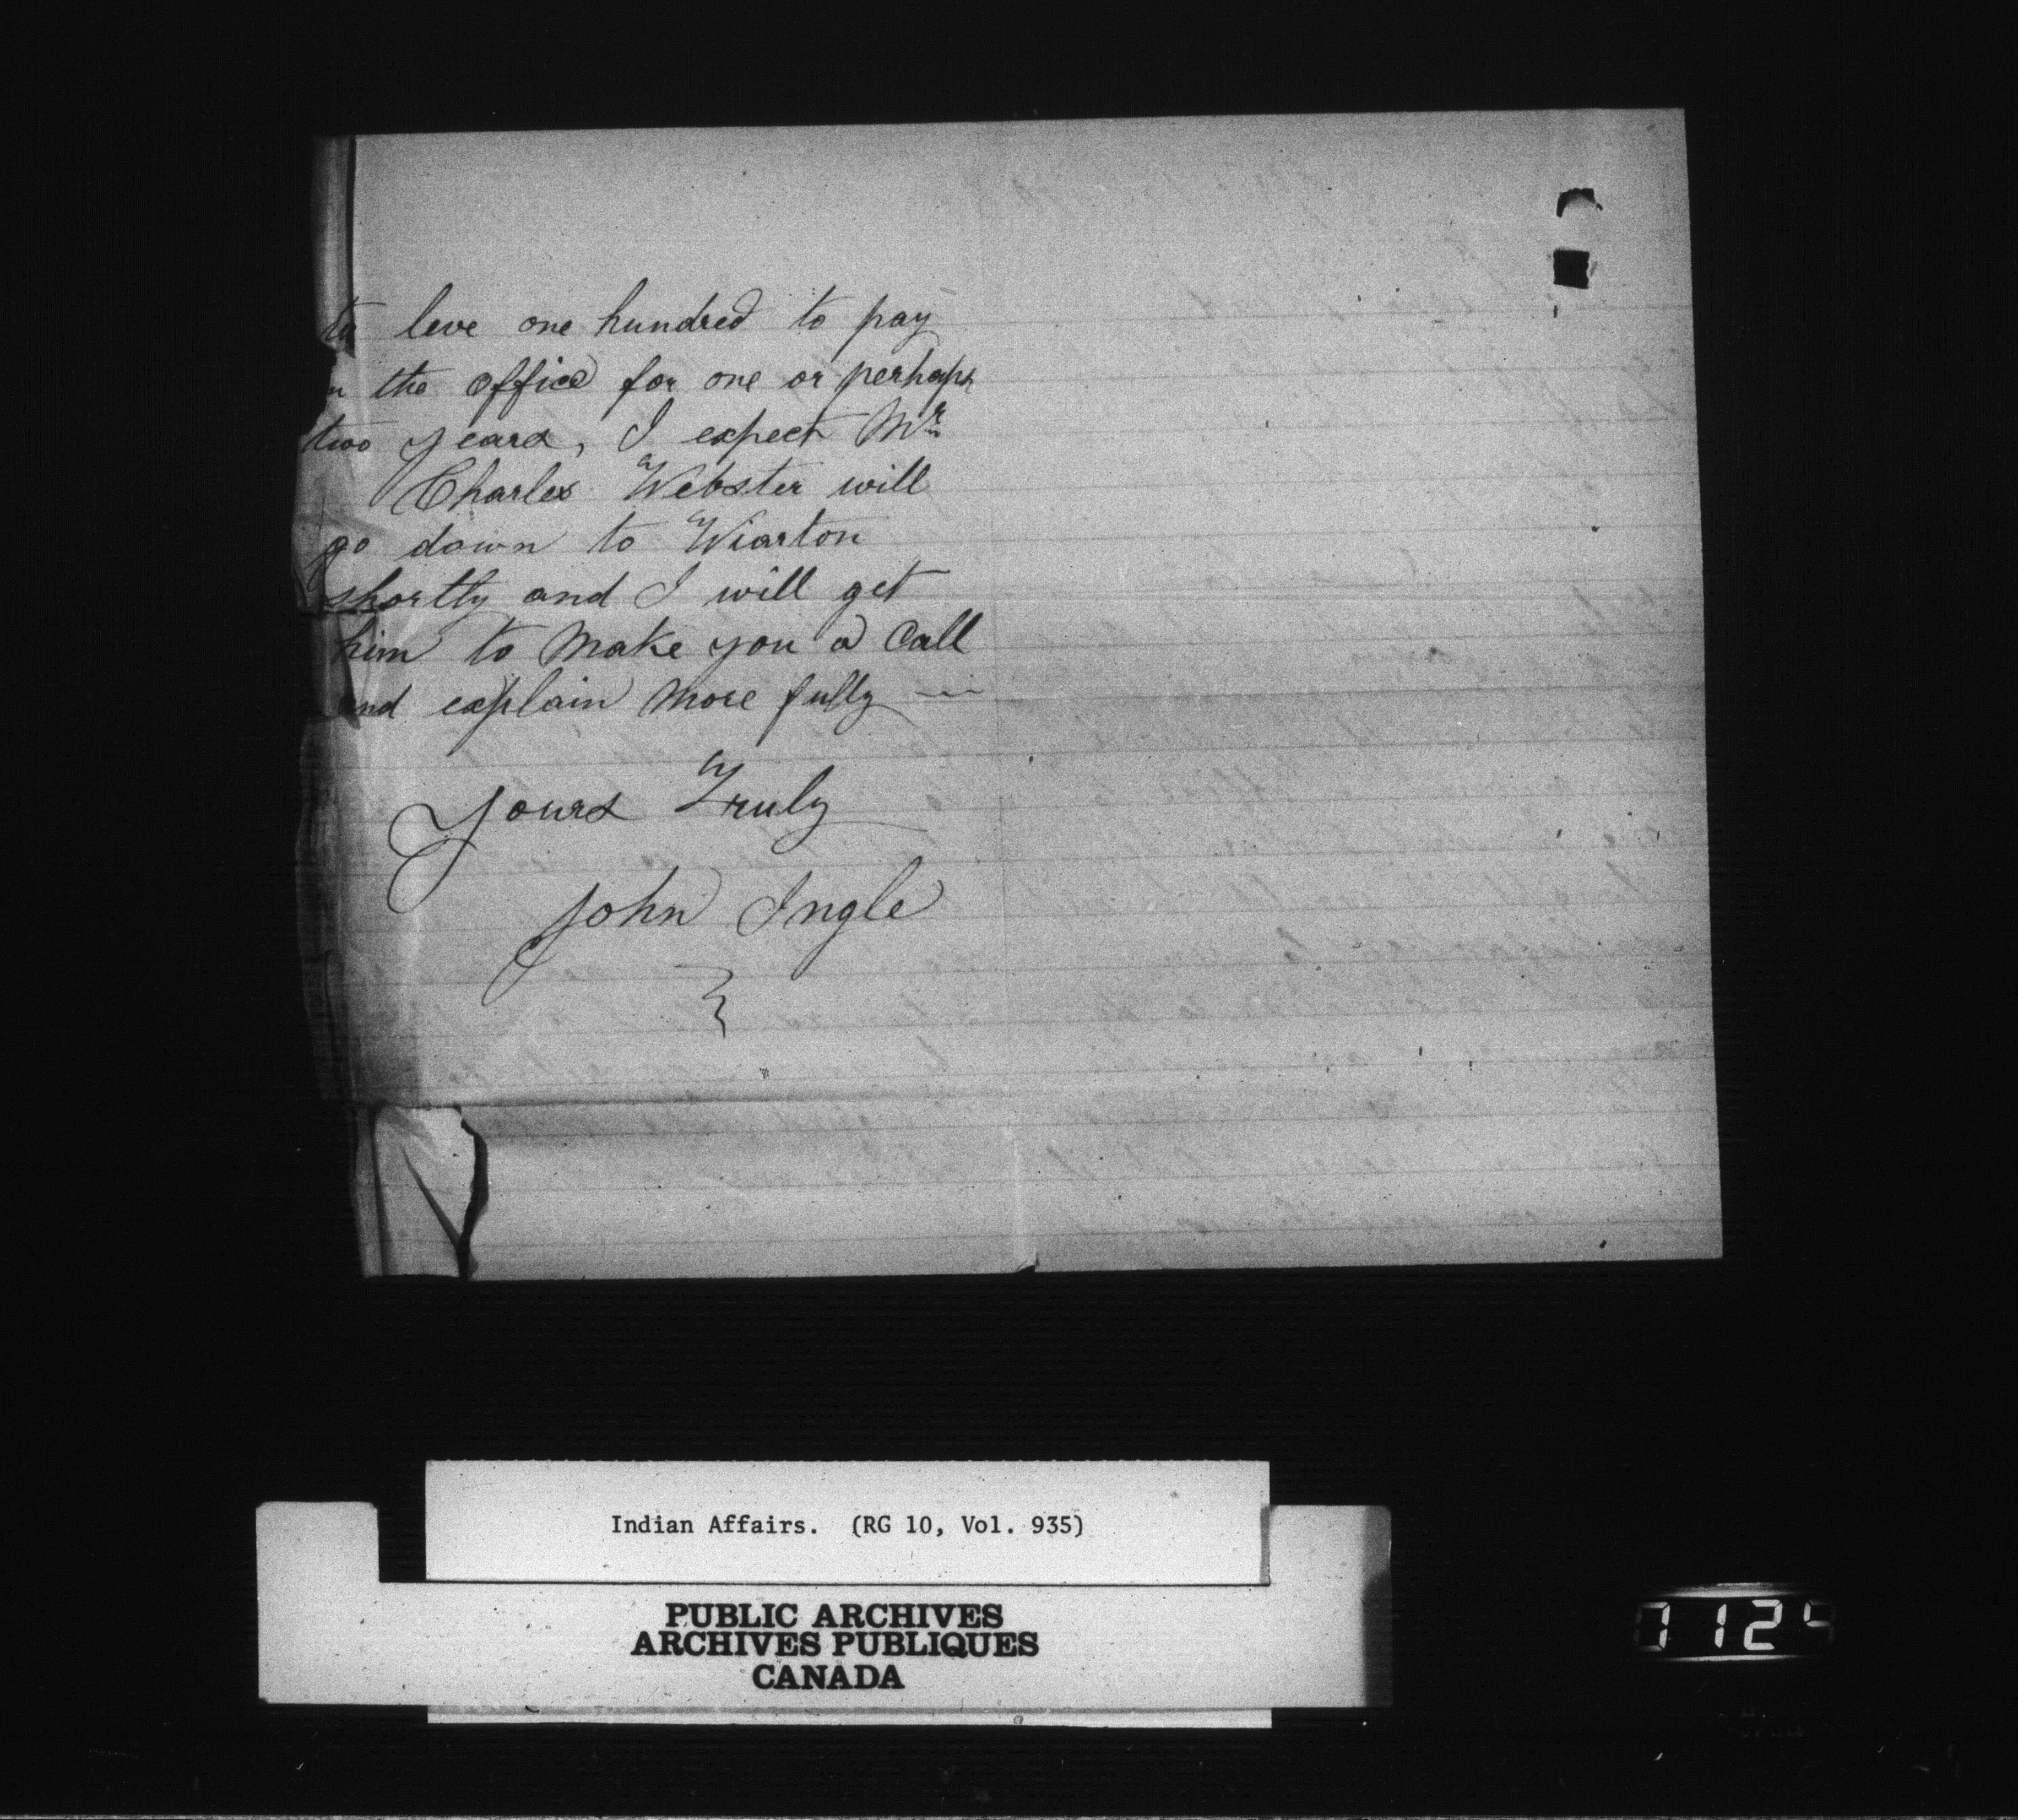 to leve one hundred to pay
in the office for one or perhaps
two years, I expect Mr
Charles Webster will
go down to Wiarton
shortly and I will get
him to make you a Call
and explain more fully —
Yours Truly
John Ingle
Indian Affairs. (RG 10, Vol. 935)
PUBLIC ARCHIVES
ARCHIVES PUBLIQUES
CANADA
1124